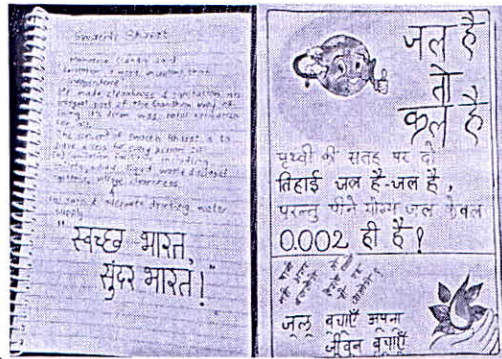 Swachh Bharat
Mahatma Gandhi said
"Sanitation is more important than
independence"
He made cleanliness & sanitation an
integral part of the Gandhian way of
living. His dream was total sanitation
The aim of Swachh Bharat is to
have access for every person to:
(a) Sanitation facilities, including
solid and liquid waste disposal
systems, village cleanliness,
safe & adequate drinking water
supply
"स्वच्छ भारत,
सुंदर भारत!"
जल है
तो
कल है
पृथ्वी की सतह पर दो
तिहाई जल है-जल है,
परन्तु पीने योग्य जल केवल
0.002 ही है!
जल बचाएँ अपना
जीवन बचाएँ